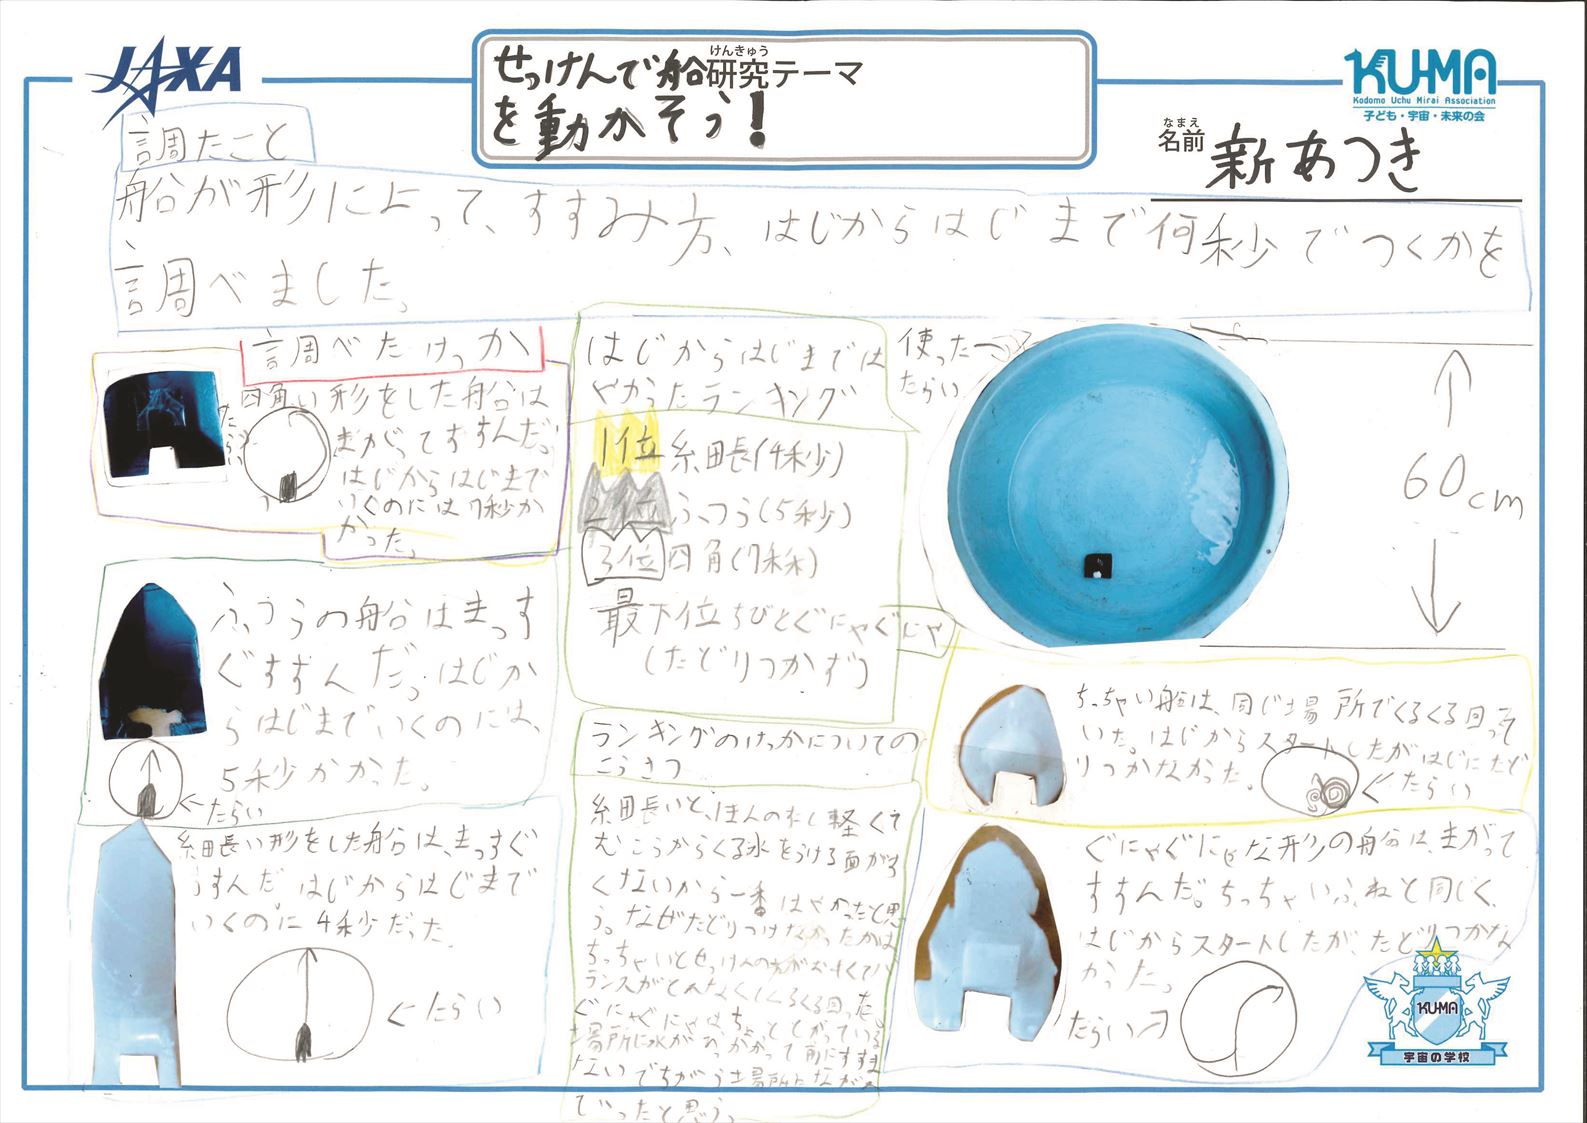 JAXA
せっけんで船
を動かそう!
けんきゅう
研究テーマ
KUMA
Kodomo Uchu Mirai Association
子ども・宇宙・未来の会
なまえ
名前
新あつき
調たこと
船が形によって、すすみ方、はじからはじまで何秒でつくかを
調べました。
調べたけっか
四角い形をした船は
まがってすすんだ。
はじからはじまで
いくのには7秒か
かった。
たらい
ふつうの船はまっす
ぐすすんだ。はじか
らはじまでいくのには、
5秒かかった。
←たらい
細長い形をした船は、まっすぐ
すすんだ。はじからはじまで
いくのに4秒だった。
←たらい
はじからはじまでは
やかったランキング
1位 細長(4秒)
2位 ふつう(5秒)
3位 四角(7秒)
最下位 ちびとぐにゃぐにゃ
(たどりつかず)
ランキングのけっかについての
こうさつ
細長いと、ほんの少し軽くて
むこうからくる水をうける面がす
くないから一番はやかったと思
う。なぜたどりつけなかったかは
ちっちゃいとせっけんの方がおもくてバ
ランスがとれなくてくるくる回った。
ぐにゃぐにゃは、ちょっと
場所に水がぶつかって前にすすま
ないでちがう場所に
でったと思う。
使った→
たらい
60cm
ちっちゃい船は、同じ場所でくるくる回って
いた。はじからスタートしたがはじにたど
りつかなかった。
←たらい
ぐにゃぐにゃな形の船は、まがって
すすんだ。ちっちゃいふねと同じく、
はじからスタートしたが、たどりつかな
かった。
たらい→
KUMA
宇宙の学校